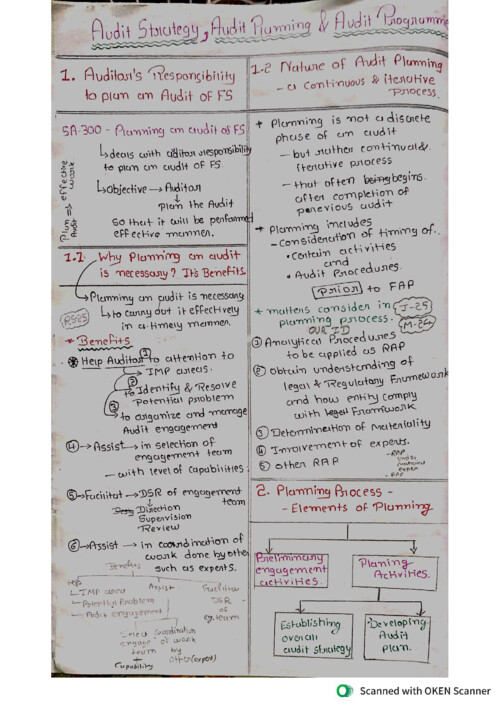 Audit Strategy, Audit Planning & Audit Programme
1. Auditor's Responsibility
to plan an Audit of FS
SA-300 - Planning an audit of FS
↳ deals with auditor responsibility
to plan an audit of FS.
↳ Objective → Auditor
↳ plan the Audit
So that it will be performed
effective manner.
Plan ⇒ effective
Audit work
1.1 Why Planning an audit
is necessary? It's Benefits.
↳ Planning an audit is necessary
↳ to carry out it effectively
in a timely manner.
RS25
* Benefits
Help Auditor ① to attention to
↳ IMP areas.
② to Identify & Resolve
Potential problem
③ to organize and manage
Audit engagement
④ → Assist → in selection of
engagement team
— with level of capabilities
⑤ → Facilitat → DSR of engagement
team
Direction
Supervision
Review
⑥ → Assist → in coordination of
work done by other
such as experts.
Benefits
Help
Assist
Facilitat
IMP area
Potential Problem
Audit engagement
DSR
of
eg. team
Select
engage
team
+
Capability
Coordination
of work
by
other (expert)
1.2 Nature of Audit Planning
- a Continuous & iterative
Process.
* Planning is not a discrete
phase of an audit
- but rather continual &
iterative process
- that often being begins.
after completion of
previous audit
* Planning includes
- Consideration of timing of..
• Certain activities
and
• Audit Procedures.
Prior to FAP
* matters consider in
planning process.
J-25
M-24
OUR ID
① Analytical Procedures
to be applied as RAP
② Obtain understanding of
legal & Regulatory Framework
and how entity comply
with legal Framework
③ Determination of Materiality
④ Involvement of experts.
⑤ other RAP
- RAP
- FAP
2. Planning Process -
- Elements of Planning
Preliminary
engagement
activities.
Planing
Activities.
Establishing
overall
audit strategy
Developing
Audit
plan.
Scanned with OKEN Scanner